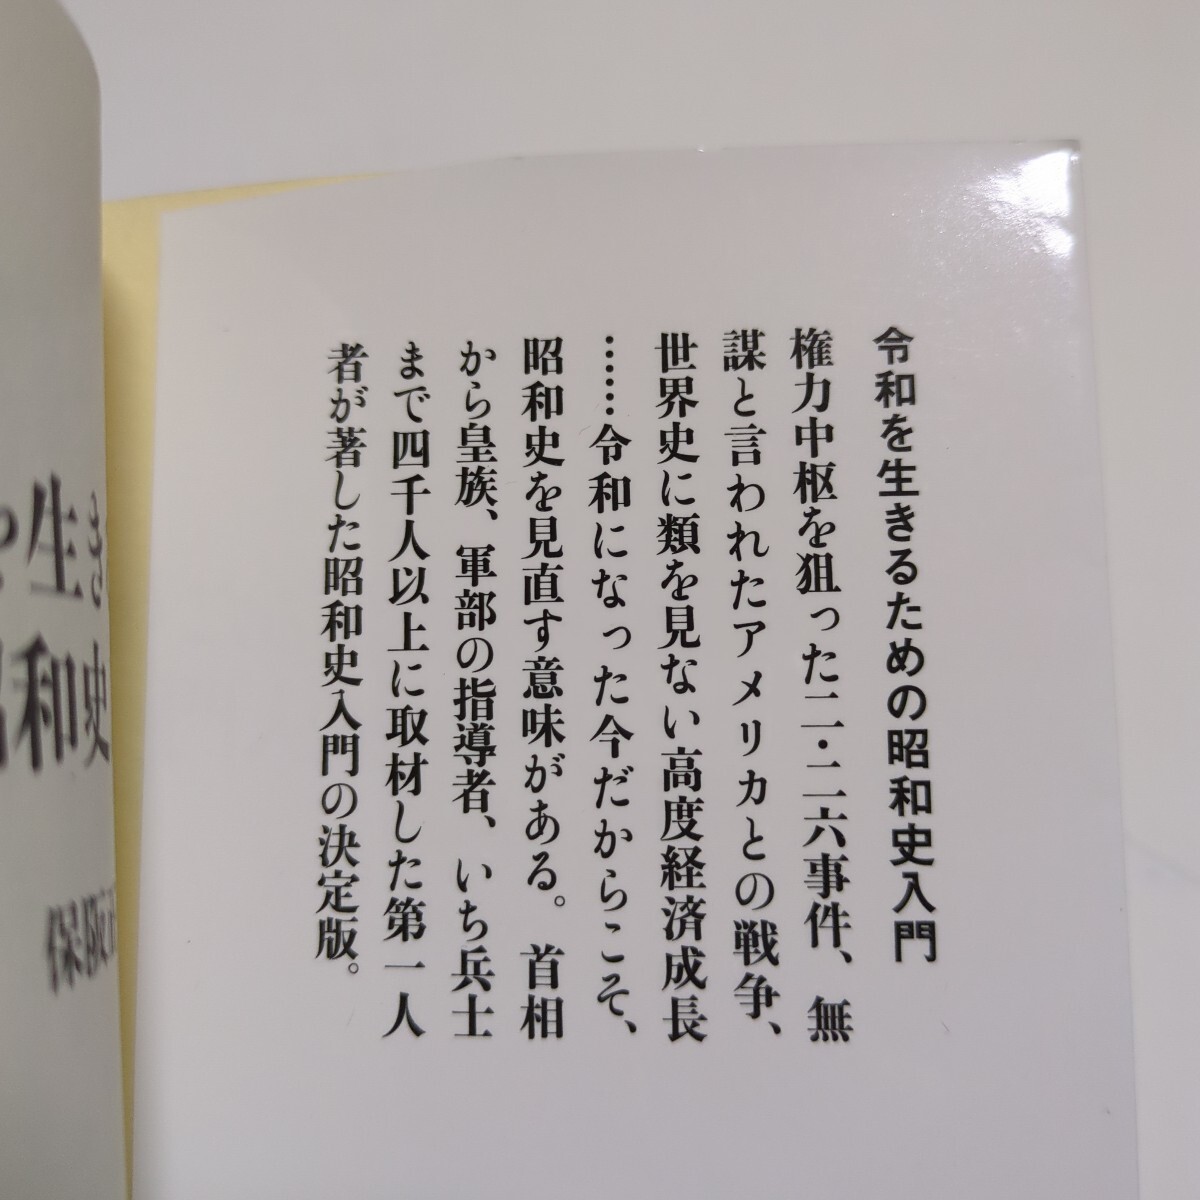 令和を生きるための昭和史入門
権力中枢を狙った二・二六事件、無
謀と言われたアメリカとの戦争、
世界史に類を見ない高度経済成長
……令和になった今だからこそ、
昭和史を見直す意味がある。首相
から皇族、軍部の指導者、いち兵士
まで四千人以上に取材した第一人
者が著した昭和史入門の決定版。
生き
和史
保阪